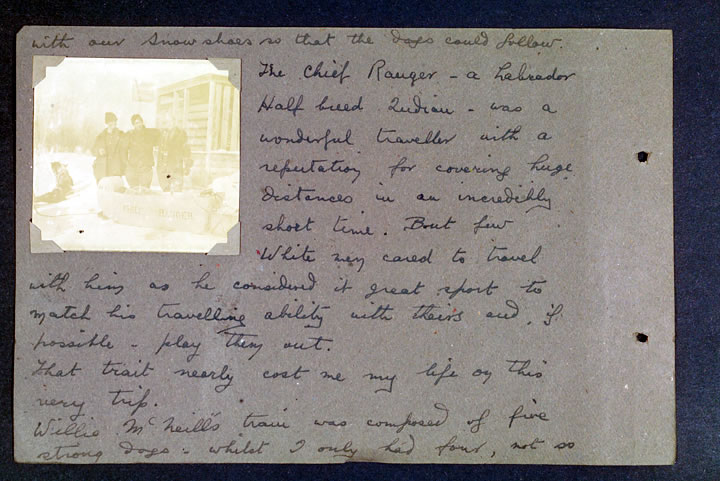 with our snow shoes so that the dogs could follow.
The Chief Ranger - a Labrador
Half breed Indian - was a
wonderful traveller with a
reputation for covering huge
distances in an incredibly
short time. But few
White men cared to travel
with him as he considered it great sport to
match his travelling ability with theirs and, if
possible - play them out.
That trait nearly cost me my life on this
very trip.
Willie McNeill's train was composed of five
strong dogs - whilst I only had four, not so
CHIEF RANGER